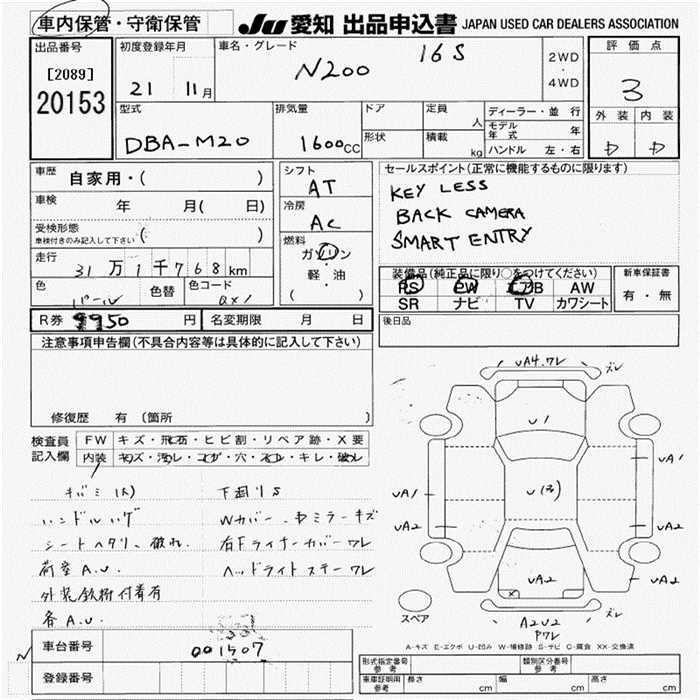 車内保管・守衛保管
JU 愛知 出品申込書 JAPAN USED CAR DEALERS ASSOCIATION
出品番号
[2089]
20153
初度登録年月
21 11月
車名・グレード
N200 16S
2WD
・
4WD
評価点
3
外装 内装
型式
DBA-M20
排気量
1600CC
ドア
形状
定員
人
積載
kg
ディーラー・並行
モデル年式 年
ハンドル 左・右
車歴
自家用・( )
車検
年 月( 日)
受検形態
車検付きのみ記入して下さい ( )
走行
31万1千768km
色
パール
色替
色コード
QX1
シフト
AT
冷房
AC
燃料
ガソリン
・
軽・油
( )
セールスポイント(正常に機能するものに限ります)
KEY LESS
BACK CAMERA
SMART ENTRY
装備品(純正品に限り○をつけてください)
PS PW エアB AW
SR ナビ TV カワシート
新車保証書
有・無
R券 9950 円
名変期限 月 日
後日品
注意事項申告欄(不具合内容等は具体的に記入して下さい)
修復歴 有 (箇所 )
検査員
記入欄
FW キズ・飛石・ヒビ割・リペア跡・X要
内装 キズ・汚レ・コゲ・穴・スレ・キレ・破レ
キバミ(大) 下廻りS
ハンドルハゲ Wカバー、ドミラーキズ
シートヘタリ、破れ 右Fライナーカバーワレ
荷室A.U. ヘッドライトステーワレ
外装鉄粉付着有
各A.U.
UA4.ワレ
ズレ
U1
UA1
UA1
UA2
UA2
UA2
UA2
ズレ
A2U2
Pワレ
スペア
A-キズ E-エクボ U-凹み W-補修跡 S-サビ C-腐食 XX-交換済
車台番号
001507
登録番号
形式指定番号 参考
類別区分番号 参考
車庫証明用 参考
長さ cm
幅 cm
高さ cm